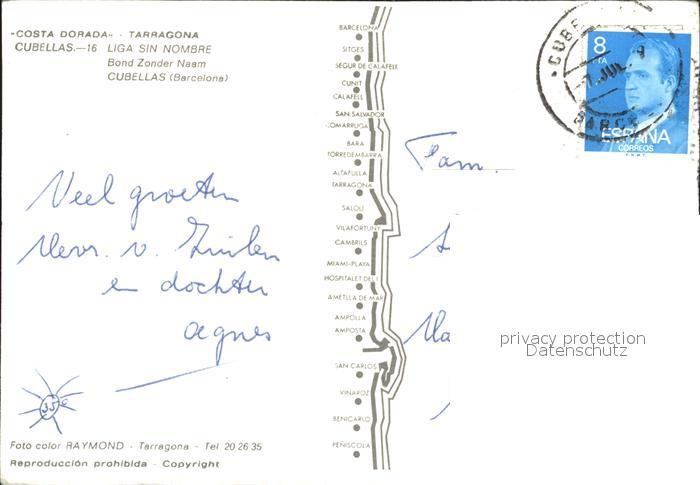 "COSTA DORADA" - TARRAGONA
CUBELLAS.—16 LIGA SIN NOMBRE
Bond Zonder Naam
CUBELLAS (Barcelona)
Veel groeten
Mevr. v. Zuilen
en dochter
agnes
Foto color RAYMOND - Tarragona - Tel 20 26 35
Reproducción prohibida - Copyright
BARCELONA
SITGES
SEGUR DE CALAFELL
CUNIT
CALAFELL
SAN SALVADOR
COMARRUGA
BARA
TORREDEMBARRA
ALTAFULLA
TARRAGONA
SALOU
VILAFORTUNY
CAMBRILS
MIAMI-PLAYA
HOSPITALET DEL I.
AMETLLA DE MAR
AMPOLLA
AMPOSTA
SAN CARLOS
VINAROZ
BENICARLO
PEÑISCOLA
8
PTA
ESPAÑA
CORREOS
F.N.M.T.
JUL
Fam.
Ma
privacy protection
Datenschutz